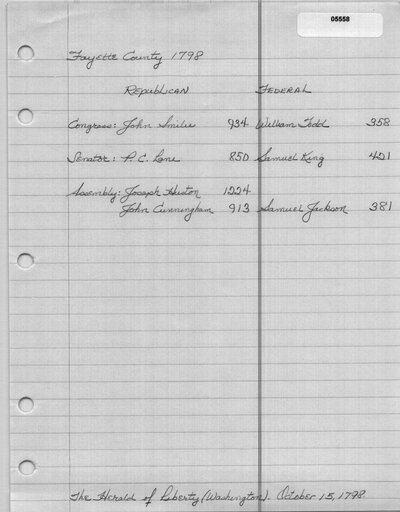 05558
Fayette County 1798
Republican Federal
Congress: John Smilie 934 William Todd 358
Senator: P. C. Lane 850 Samuel King 421
Assembly: Joseph Huston 1224
John Cunningham 913 Samuel Jackson 381
The Herald of Liberty (Washington). October 15, 1798